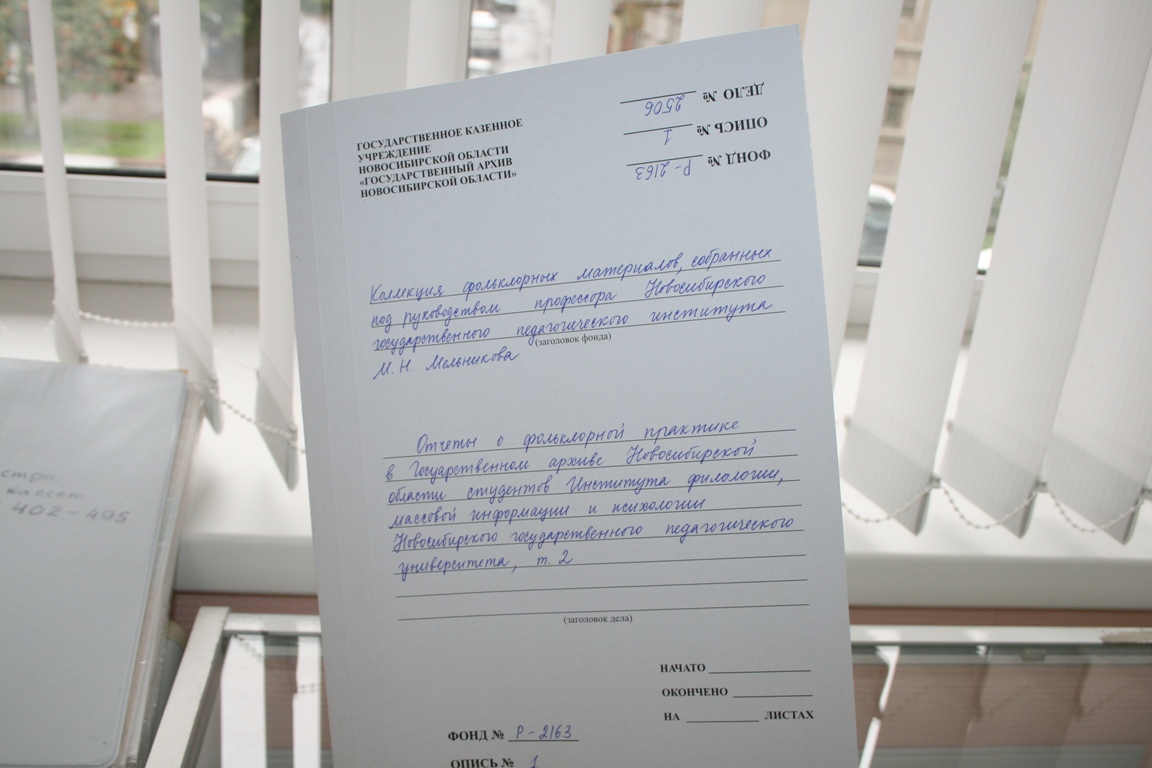 ГОСУДАРСТВЕННОЕ КАЗЕННОЕ
УЧРЕЖДЕНИЕ
НОВОСИБИРСКОЙ ОБЛАСТИ
«ГОСУДАРСТВЕННЫЙ АРХИВ
НОВОСИБИРСКОЙ ОБЛАСТИ»
ФОНД № Р-2163
ОПИСЬ № 1
ДЕЛО № 2506
Коллекция фольклорных материалов, собранных
под руководством профессора Новосибирского
государственного педагогического института
(заголовок фонда)
М.Н. Мельникова
Отчеты о фольклорной практике
в Государственном архиве Новосибирской
области студентов Института филологии,
массовой информации и психологии
Новосибирского государственного педагогического
университета, т. 2
(заголовок дела)
НАЧАТО
ОКОНЧЕНО
НА ЛИСТАХ
ФОНД № Р-2163
ОПИСЬ № 1
кассет
402-495